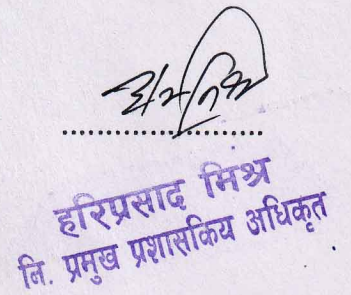 हरिप्रसाद मिश्र
नि. प्रमुख प्रशासकिय अधिकृत